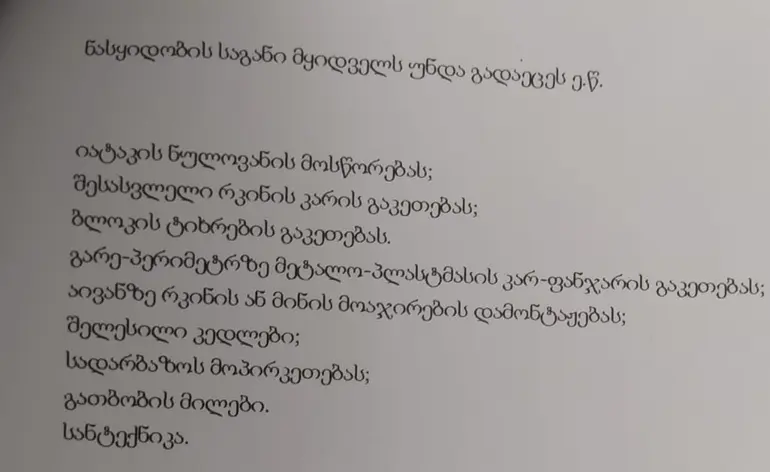 ნასყიდობის საგანი მყიდველს უნდა გადაეცეს ე.წ.
იატაკის ნულოვანის მოსწორებას;
შესასვლელი რკინის კარის გაკეთებას;
ბლოკის ტიხრების გაკეთებას.
გარე-პერიმეტრზე მეტალო-პლასტმასის კარ-ფანჯარის გაკეთებას;
აივანზე რკინის ან მინის მოაჯირების დამონტაჟებას;
შელესილი კედლები;
სადარბაზოს მოპირკეთებას;
გათბობის მილები.
სანტექნიკა.